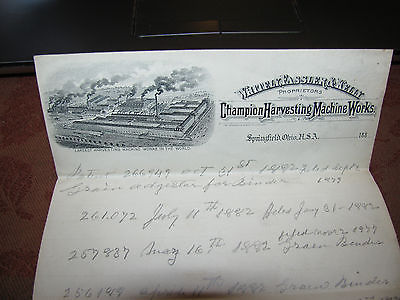 WHITELY, FASSLER & KELLY,
PROPRIETORS
Champion Harvesting Machine Works.
Springfield, Ohio, U.S.A. 188
LARGEST HARVESTING MACHINE WORKS IN THE WORLD.
266949 oct 31st 1882 filed Sept
Grain adjuster for Binder 1879
261.072 July 11th 1882 filed Jany 31-1882
filed Nov 2 1877
257837 May 16th 1882 Grain Binder
256149 April 11th 1882 Grain Binder